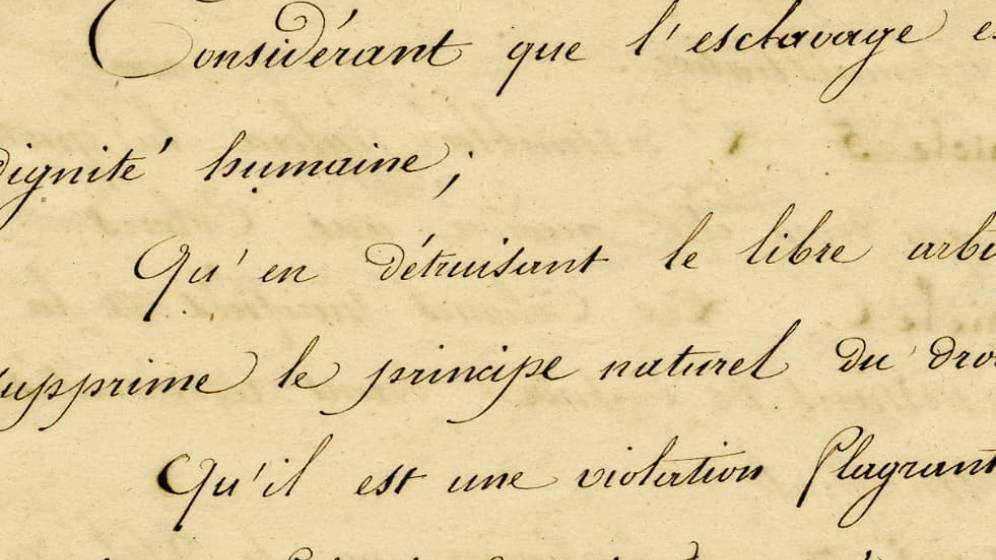 Considérant que l'esclavage
dignité humaine;
Qu'en détruisant le libre
supprime le principe naturel du
Qu'il est une violation